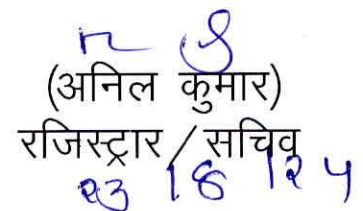 (अनिल कुमार)
रजिस्ट्रार / सचिव
23/8/24